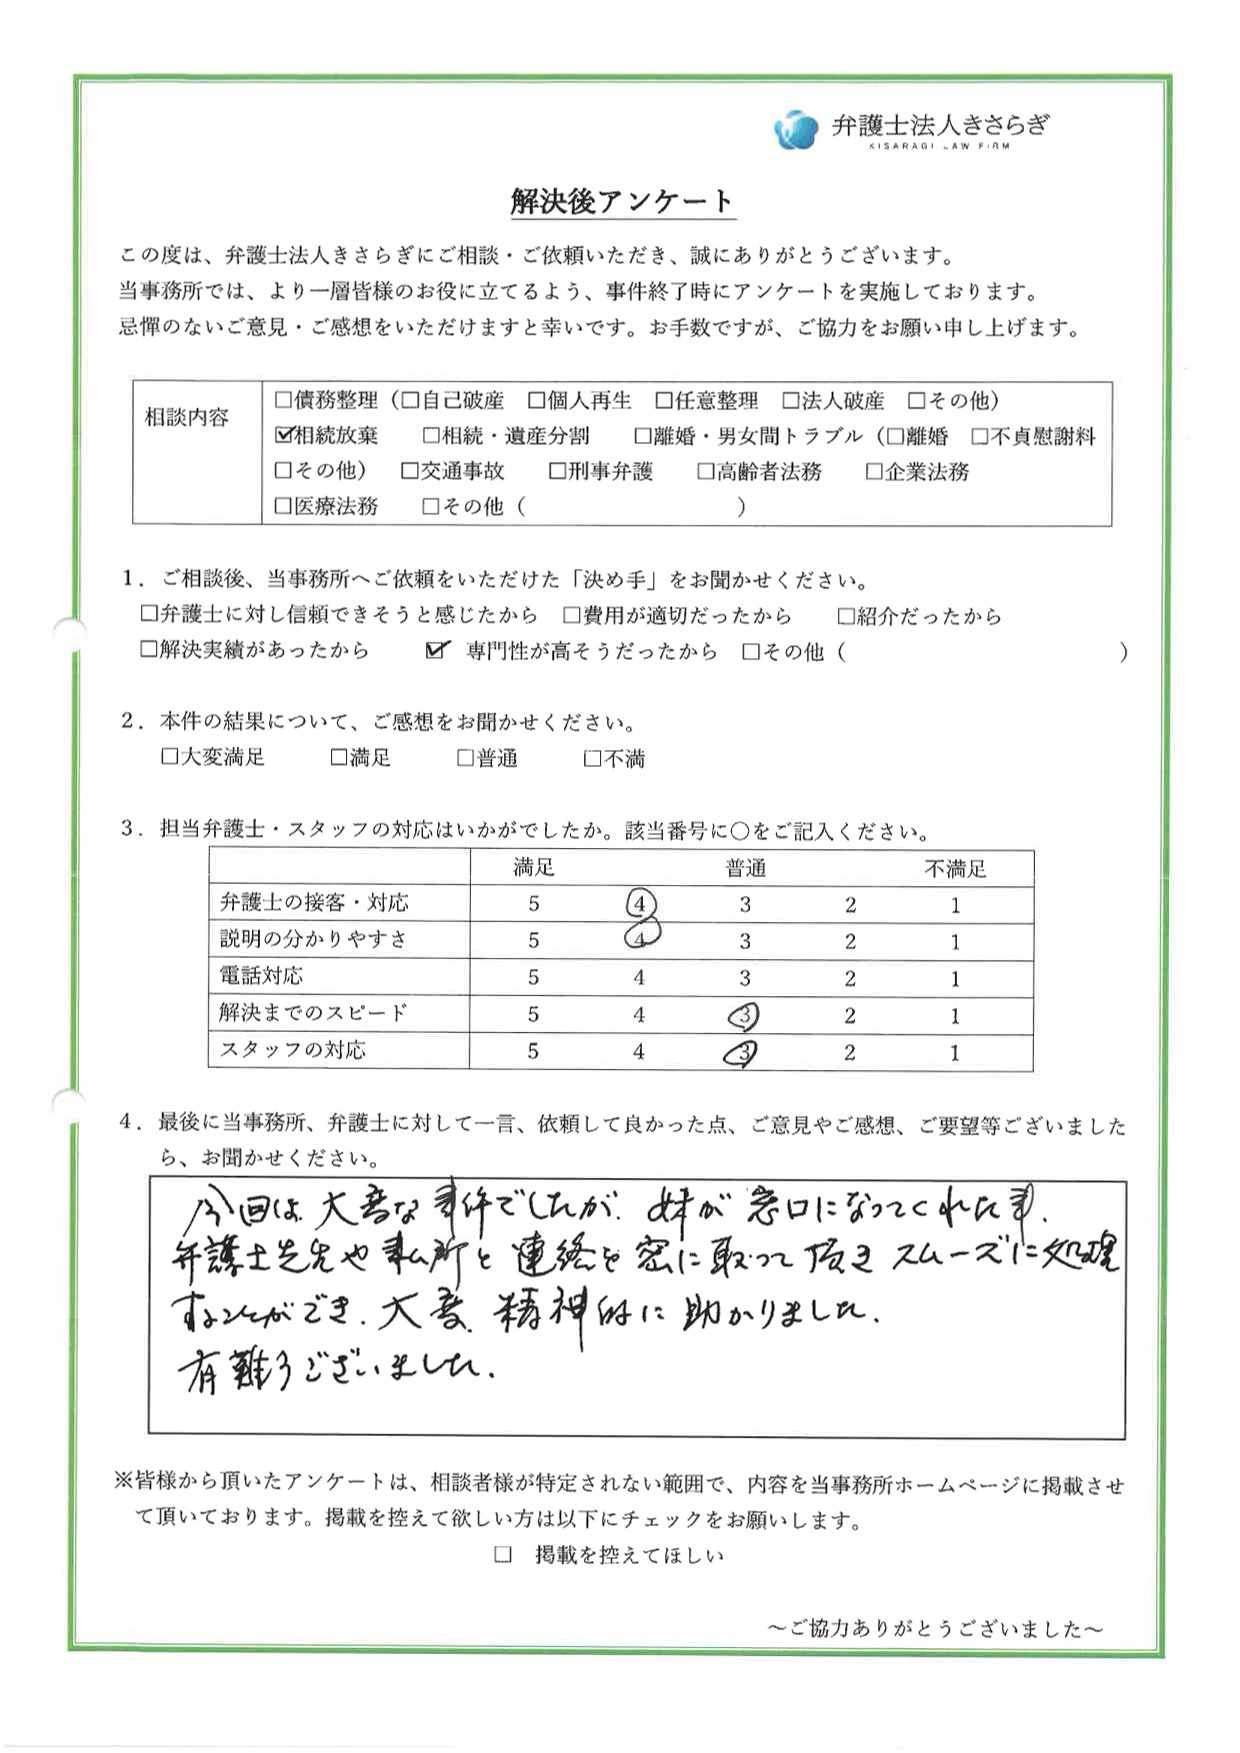 弁護士法人きさらぎ
KISARAGI LAW FIRM
解決後アンケート
この度は、弁護士法人きさらぎにご相談・ご依頼いただき、誠にありがとうございます。
当事務所では、より一層皆様のお役に立てるよう、事件終了時にアンケートを実施しております。
忌憚のないご意見・ご感想をいただけますと幸いです。お手数ですが、ご協力をお願い申し上げます。
相談内容
□債務整理（□自己破産 □個人再生 □任意整理 □法人破産 □その他）
☑相続放棄 □相続・遺産分割 □離婚・男女間トラブル（□離婚 □不貞慰謝料
□その他） □交通事故 □刑事弁護 □高齢者法務 □企業法務
□医療法務 □その他（ ）
1．ご相談後、当事務所へご依頼をいただけた「決め手」をお聞かせください。
□弁護士に対し信頼できそうと感じたから □費用が適切だったから □紹介だったから
□解決実績があったから ☑ 専門性が高そうだったから □その他（ ）
2．本件の結果について、ご感想をお聞かせください。
□大変満足 □満足 □普通 □不満
3．担当弁護士・スタッフの対応はいかがでしたか。該当番号に○をご記入ください。
満足 普通 不満足
弁護士の接客・対応 5 4 3 2 1
説明の分かりやすさ 5 4 3 2 1
電話対応 5 4 3 2 1
解決までのスピード 5 4 3 2 1
スタッフの対応 5 4 3 2 1
4．最後に当事務所、弁護士に対して一言、依頼して良かった点、ご意見やご感想、ご要望等ございました
ら、お聞かせください。
今回は、大変な事件でしたが、妹が窓口になってくれた事、
弁護士先生や事ム所と連絡を密に取って頂きスムーズに処理
することができ、大変、精神的に助かりました。
有難うございました。
※皆様から頂いたアンケートは、相談者様が特定されない範囲で、内容を当事務所ホームページに掲載させ
て頂いております。掲載を控えて欲しい方は以下にチェックをお願いします。
□ 掲載を控えてほしい
～ご協力ありがとうございました～